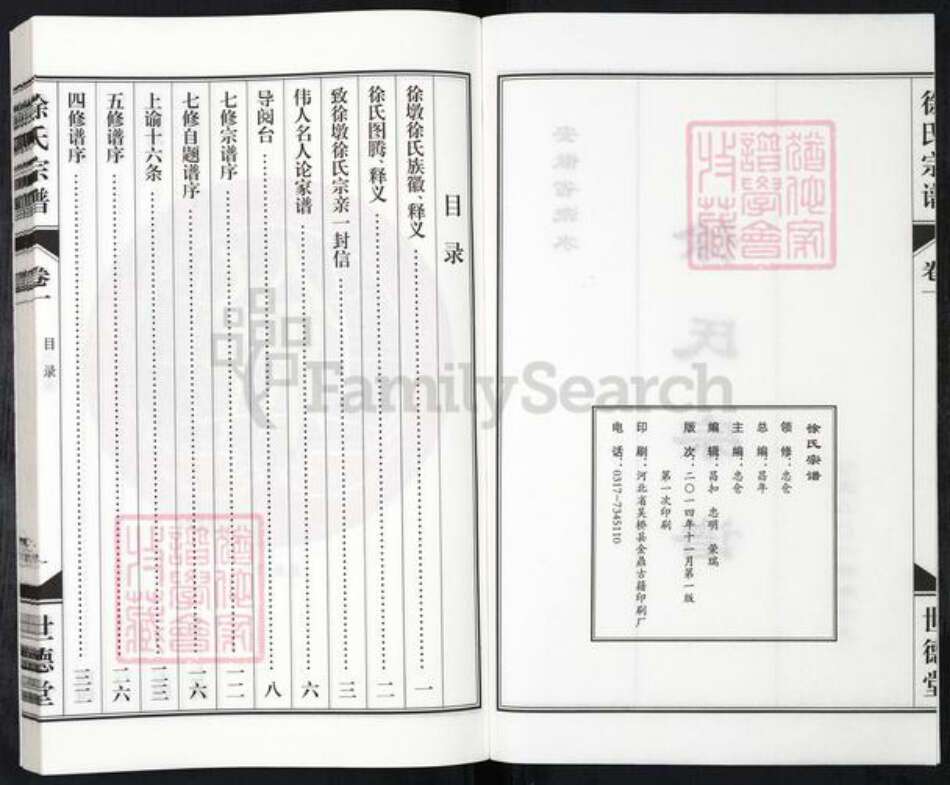 徐氏宗谱
卷一
世德堂
徐氏宗谱
领修：忠仓
总编：昌年
主编：忠仓
编辑：昌扣 忠明 荣瑞
版次：二〇一四年十一月第一版
第一次印刷
印刷：河北省吴桥县金鼎古籍印刷厂
电话：0317-7345110
目录
徐墩徐氏族徽、释义 一
徐氏图腾、释义 二
致徐墩徐氏宗亲一封信 三
伟人名人论家谱 六
导阅台 八
七修宗谱序 一二
七修自题谱序 一六
上谕十六条 二三
五修谱序 二六
四修谱序 三二
徐氏宗谱
卷一
目录
世德堂
FamilySearch